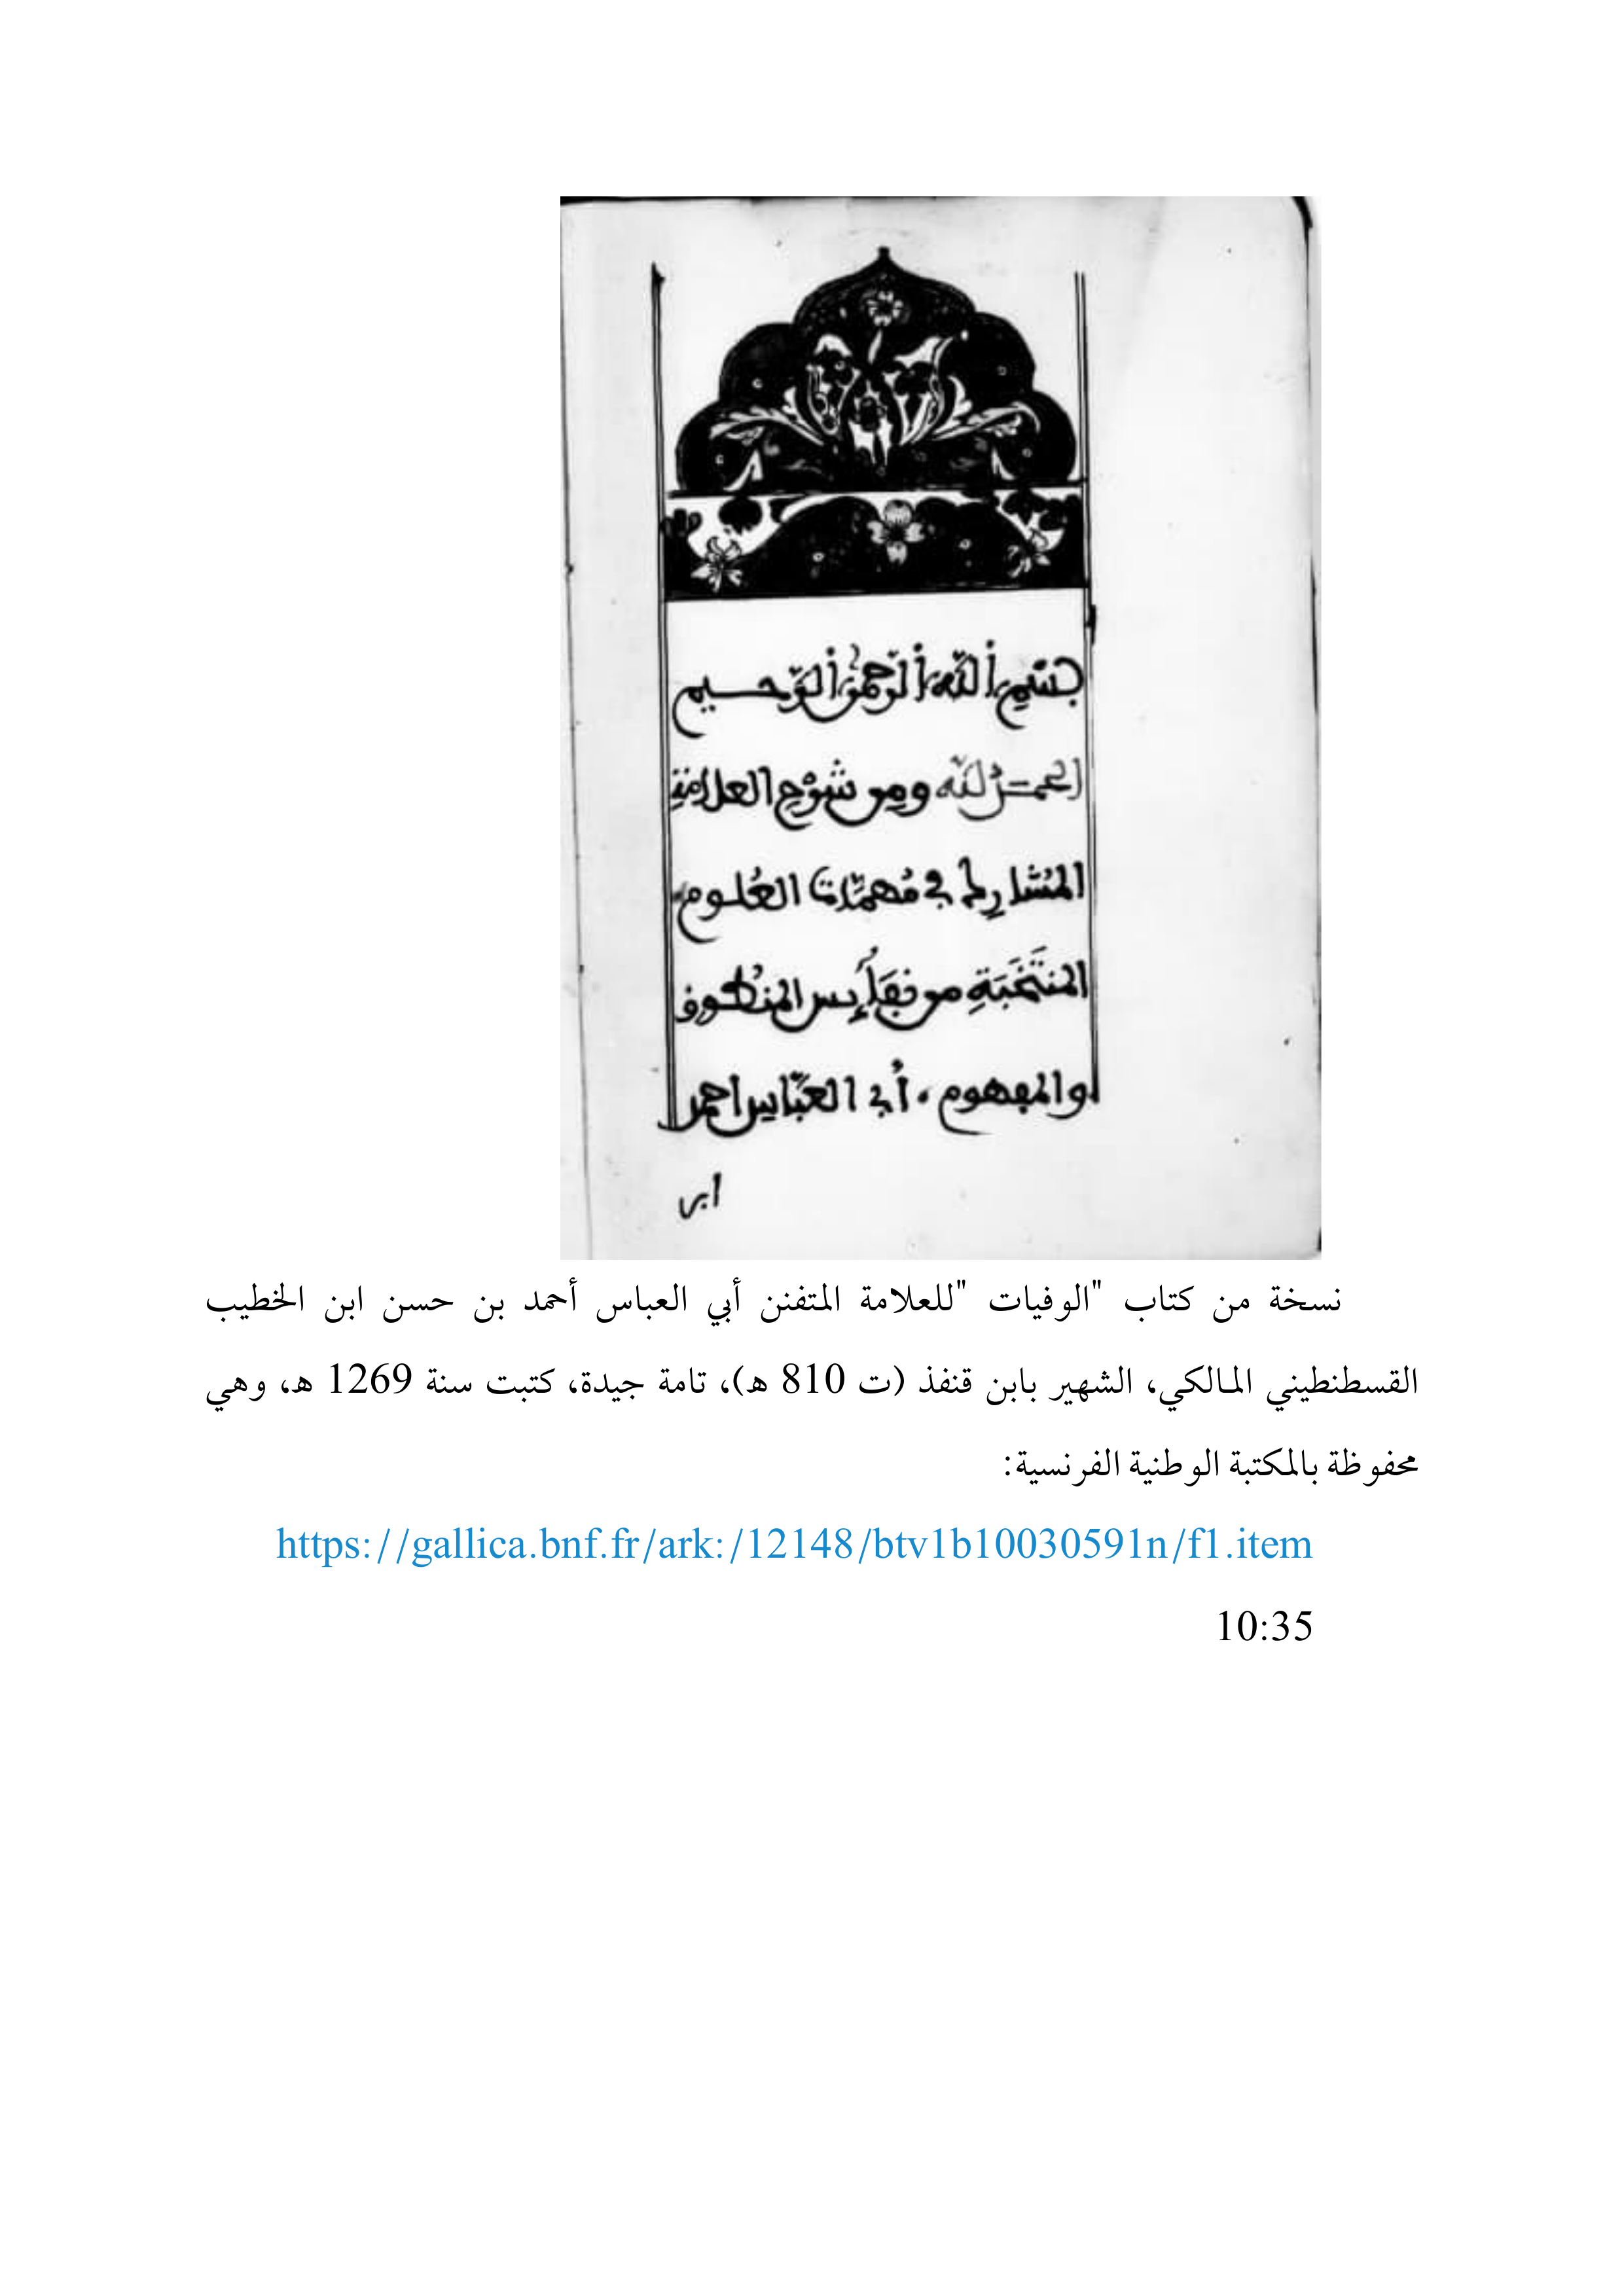 بسم الله الرحمن الرحيم
الحمد لله ومن شرح العلامة
المشارك في مهمات العلوم
المنتخبة من نفائس المنطوق
والمفهوم، أبي العباس احمد
ابن
نسخة من كتاب "الوفيات "للعلامة المتفنن أبي العباس أحمد بن حسن ابن الخطيب
القسطنطيني المالكي، الشهير بابن قنفذ (ت 810 هـ)، تامة جيدة، كتبت سنة 1269 هـ، وهي
محفوظة بالمكتبة الوطنية الفرنسية:
https://gallica.bnf.fr/ark:/12148/btv1b10030591n/f1.item
10:35